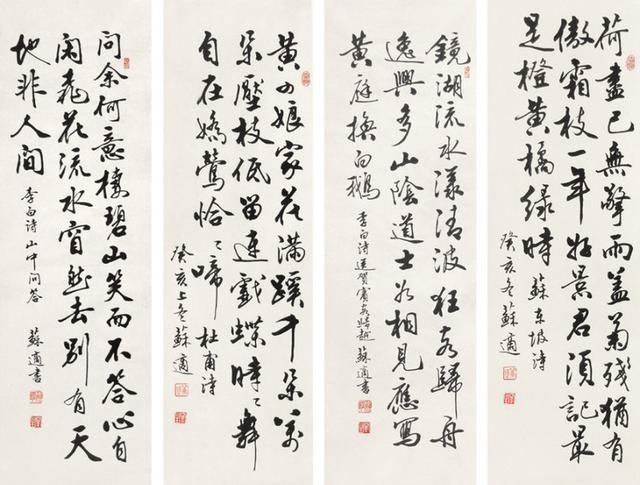 荷盡已無擎雨盖菊殘猶有
傲霜枝一年好景君須記最
是橙黄橘緑時 蘇東坡詩
癸亥冬蘇適
鏡湖流水漾清波狂客歸舟
逸興多山陰道士如相見應寫
黄庭换白鵝 李白詩送賀賓客歸越 蘇適書
黄四娘家花满蹊千朵萬
朵壓枝低留連戲蝶時々舞
自在嬌鶯恰々啼 杜甫詩
癸亥上冬蘇適
問余何意棲碧山笑而不答心自
闲桃花流水窅然去别有天
地非人间 李白詩山中問答 蘇適書